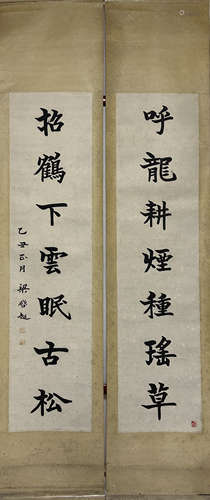 呼龍耕煙種瑤草
招鶴下雲眠古松
乙丑正月 梁啟超